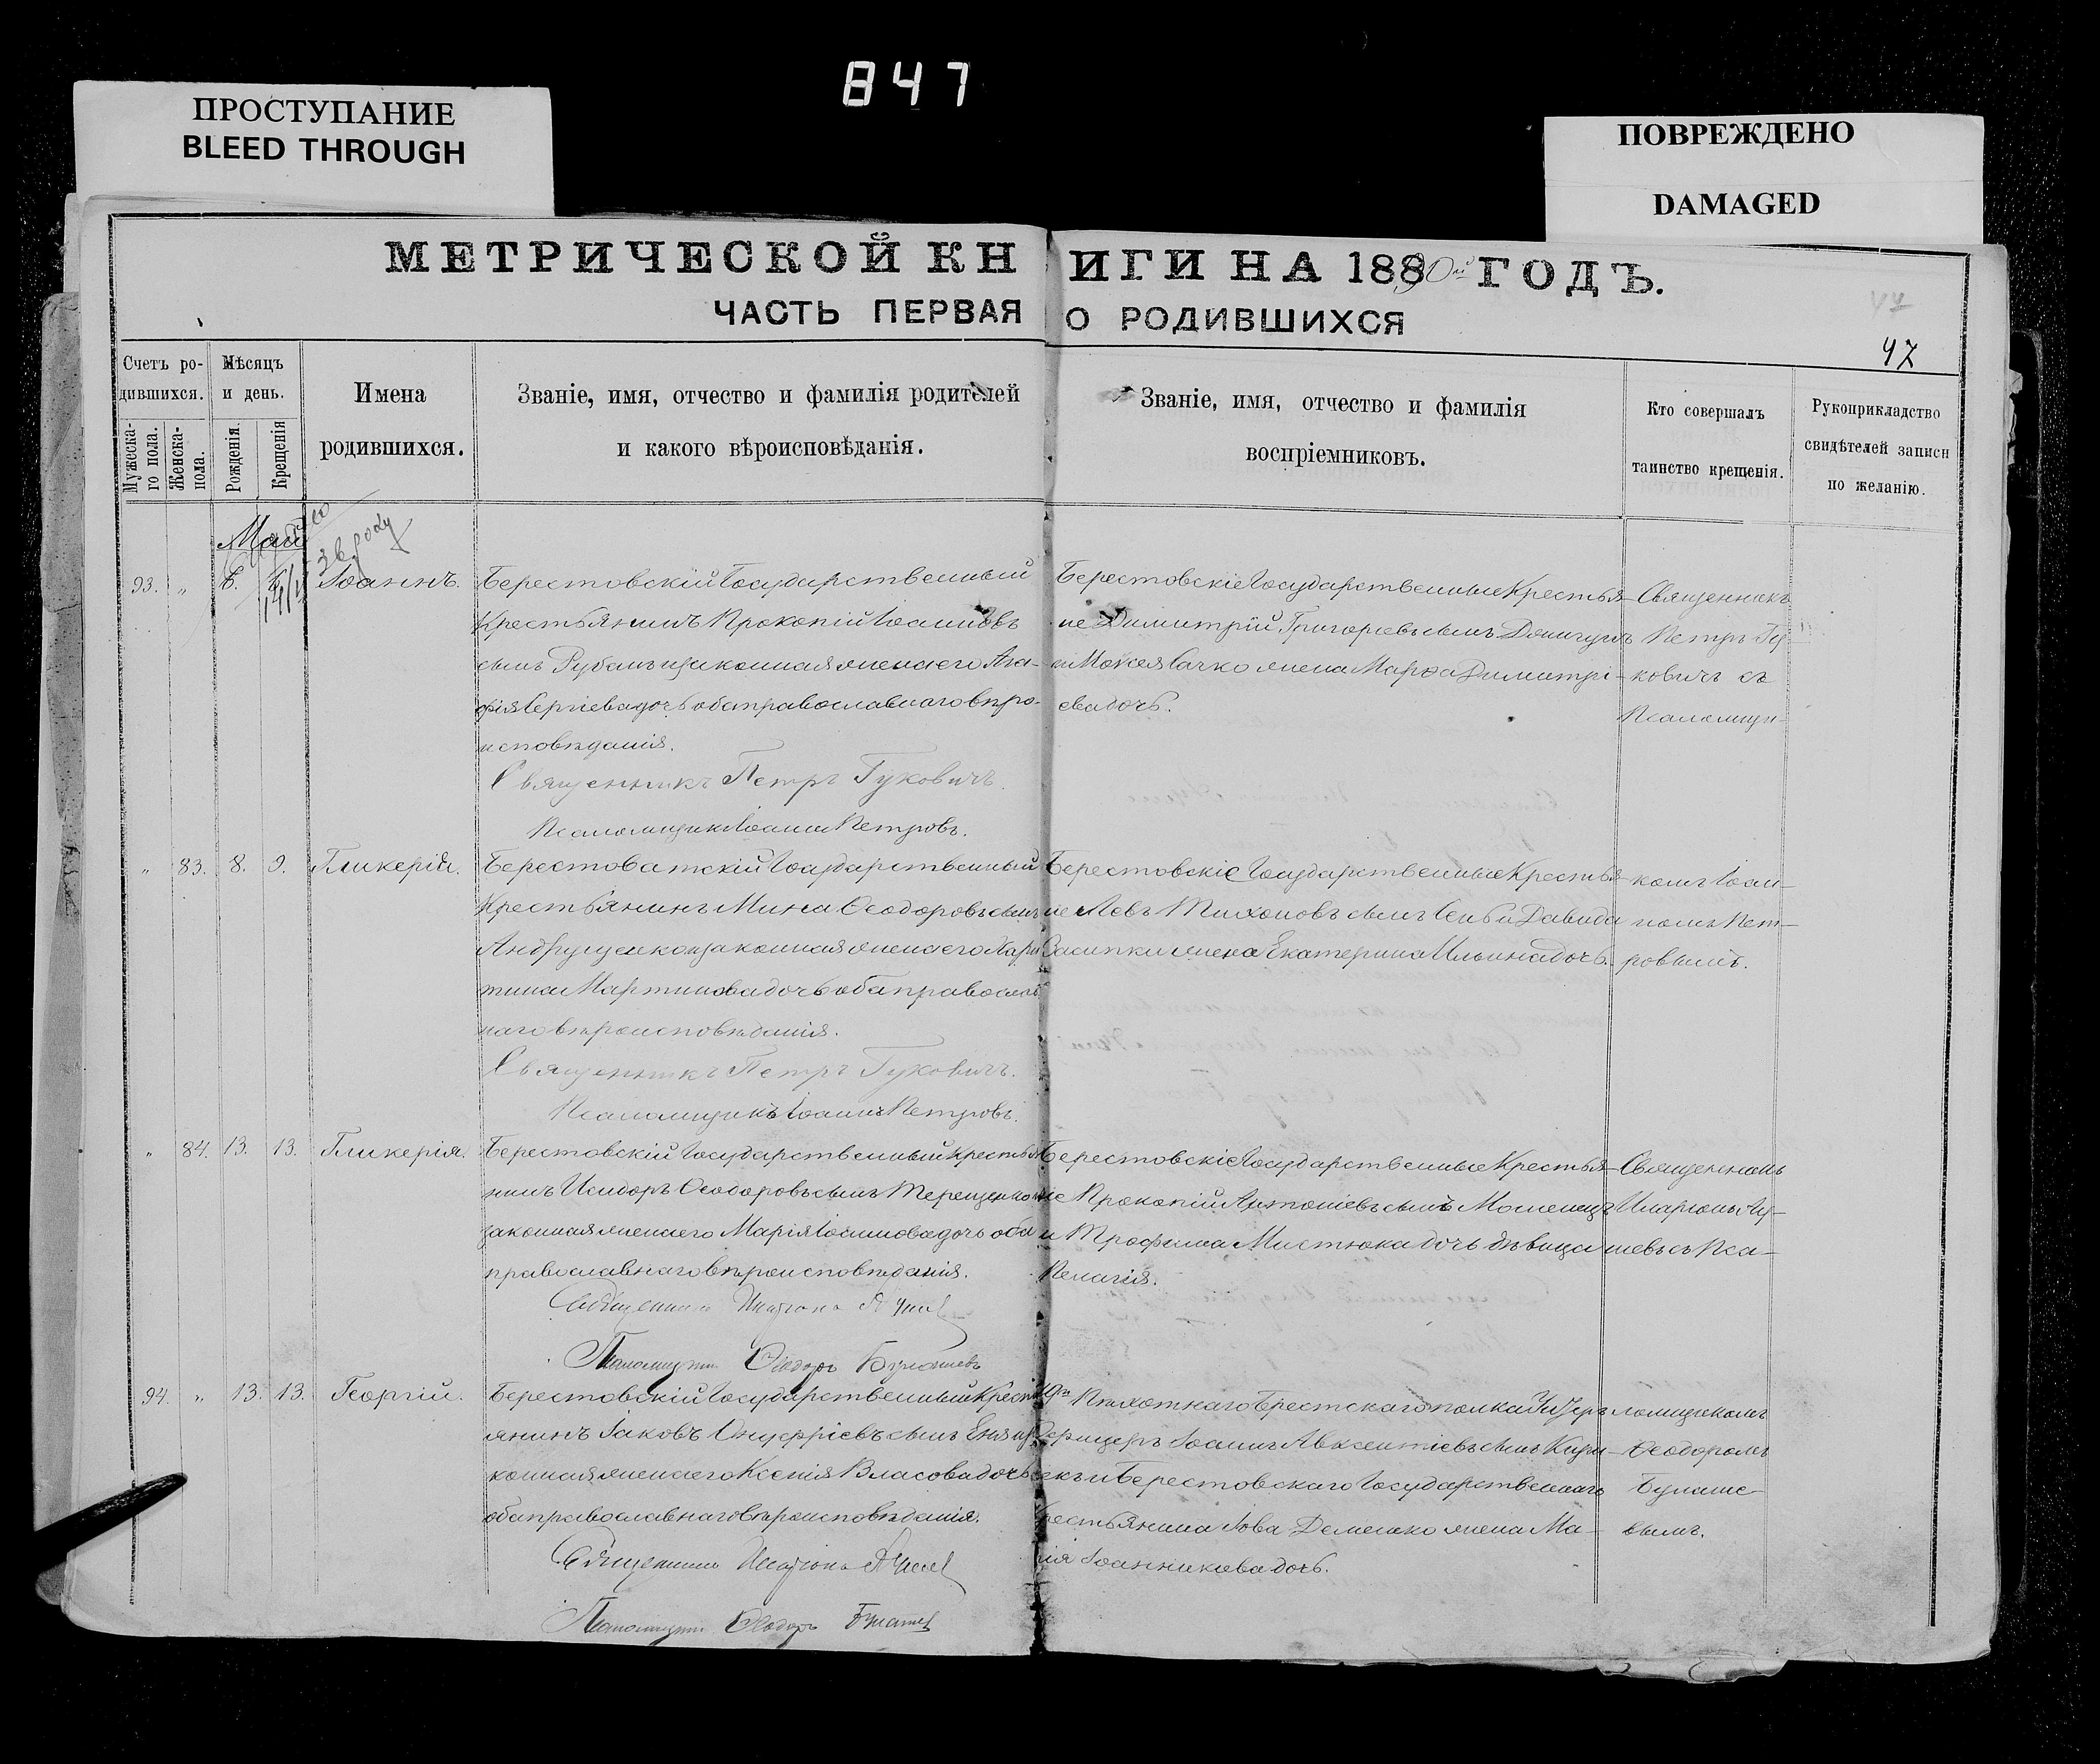 847
ПРОСТУПАНИЕ
BLEED THROUGH
ПОВРЕЖДЕНО
DAMAGED
МЕТРИЧЕСКОЙ КНИГИ НА 1890й ГОДЪ.
ЧАСТЬ ПЕРВАЯ О РОДИВШИХСЯ
47
47
Счетъ ро-
дившихся.
Мужеска-
го пола.
Женска-
пола.
Мѣсяцъ
и день.
Рожденія.
Крещенія
Имена
родившихся.
Званіе, имя, отчество и фамилія родителей
и какого вѣроисповѣданія.
Званіе, имя, отчество и фамилія
воспріемниковъ.
Кто совершалъ
таинство крещенія.
Рукоприкладство
свидѣтелей записи
по желанію.
Май
93. „ Іоаннъ.
Берестовскій Государственный
Крестьянинъ Прокопій Іоанновъ
сынъ Рубанъ и законная жена его Ага-
фія Сергіева дочь оба православнаго вѣро-
исповѣданія.
Священникъ Петръ Гуковичъ.
Псаломщикъ Іоаннъ Петровъ.
Берестовскіе Государственные Крестья-
не Димитрій Григорьевъ сынъ
и Моисея Сачко жена Марѳа Димитрі-
ева дочь.
Священникъ
Петръ Гу-
ковичъ съ
Псаломщи-
„ 83. 8. 9. Гликерія.
Берестоватскій Государственный
Крестьянинъ Мина Ѳеодоровъ сынъ
Андрущенко и законная жена его Пари
тина Мартинова дочь оба православ
наго вѣроисповѣданія.
Священникъ Петръ Гуковичъ.
Псаломщикъ Іоаннъ Петровъ.
Берестовскіе Государственные Крестья-
не Левъ Тихоновъ сынъ и Давида
Засипки жена Екатерина Ильина дочь.
комъ Іоан-
номъ Пет-
ровымъ.
„ 84. 13. 13. Гликерія.
Берестовскій Государственный Крестья
нинъ Исидоръ Ѳеодоровъ сынъ Терещенко и
законная жена его Марія Іоаннова дочь оба
православнаго вѣроисповѣданія.
Священникъ Иларіонъ
Псаломщикъ Ѳеодоръ Булашевъ
Берестовскіе Государственные Крестья-
не Прокопій Антоніевъ сынъ
и Трофима Мистюка дочь дѣвица
Пелагія.
Священникъ
Иларіонъ Лу-
шевъ съ Пса-
94. „ 13. 13. Георгій.
Берестовскій Государственный Кресть
янинъ Іаковъ Онуфріевъ сынъ
конная жена его Ксенія Власова дочь
оба православнаго вѣроисповѣданія.
Священникъ Иларіонъ
Псаломщикъ Ѳеодоръ Булашев
Пѣхотнаго Брестскаго полка Унтеръ
Офицеръ Іоаннъ Авксентіевъ сынъ
и Берестовскаго Государственнаго
Крестьянина Льва Демешко жена Ма-
рія Іоанникіева дочь.
ломщикомъ
Ѳеодоромъ
Булаше-
вымъ.